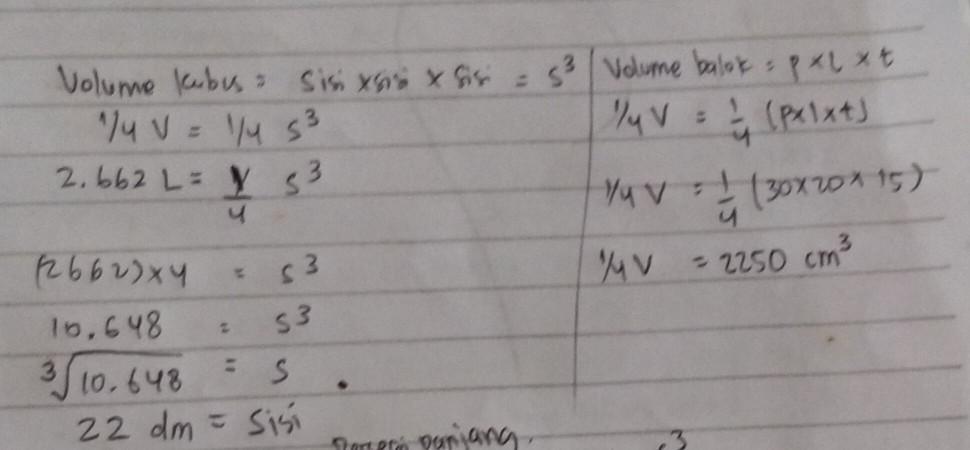 Volume kubus = sisi x sisi x sisi = s³
1/4 V = 1/4 s³
2.662 L = 1/4 s³
(2662) x 4 = s³
10.648 = s³
³√10.648 = s
22 dm = sisi
Volume balok = p x l x t
1/4 V = 1/4 (p x l x t)
1/4 V = 1/4 (30 x 20 x 15)
1/4 V = 2250 cm³
panjang.
3